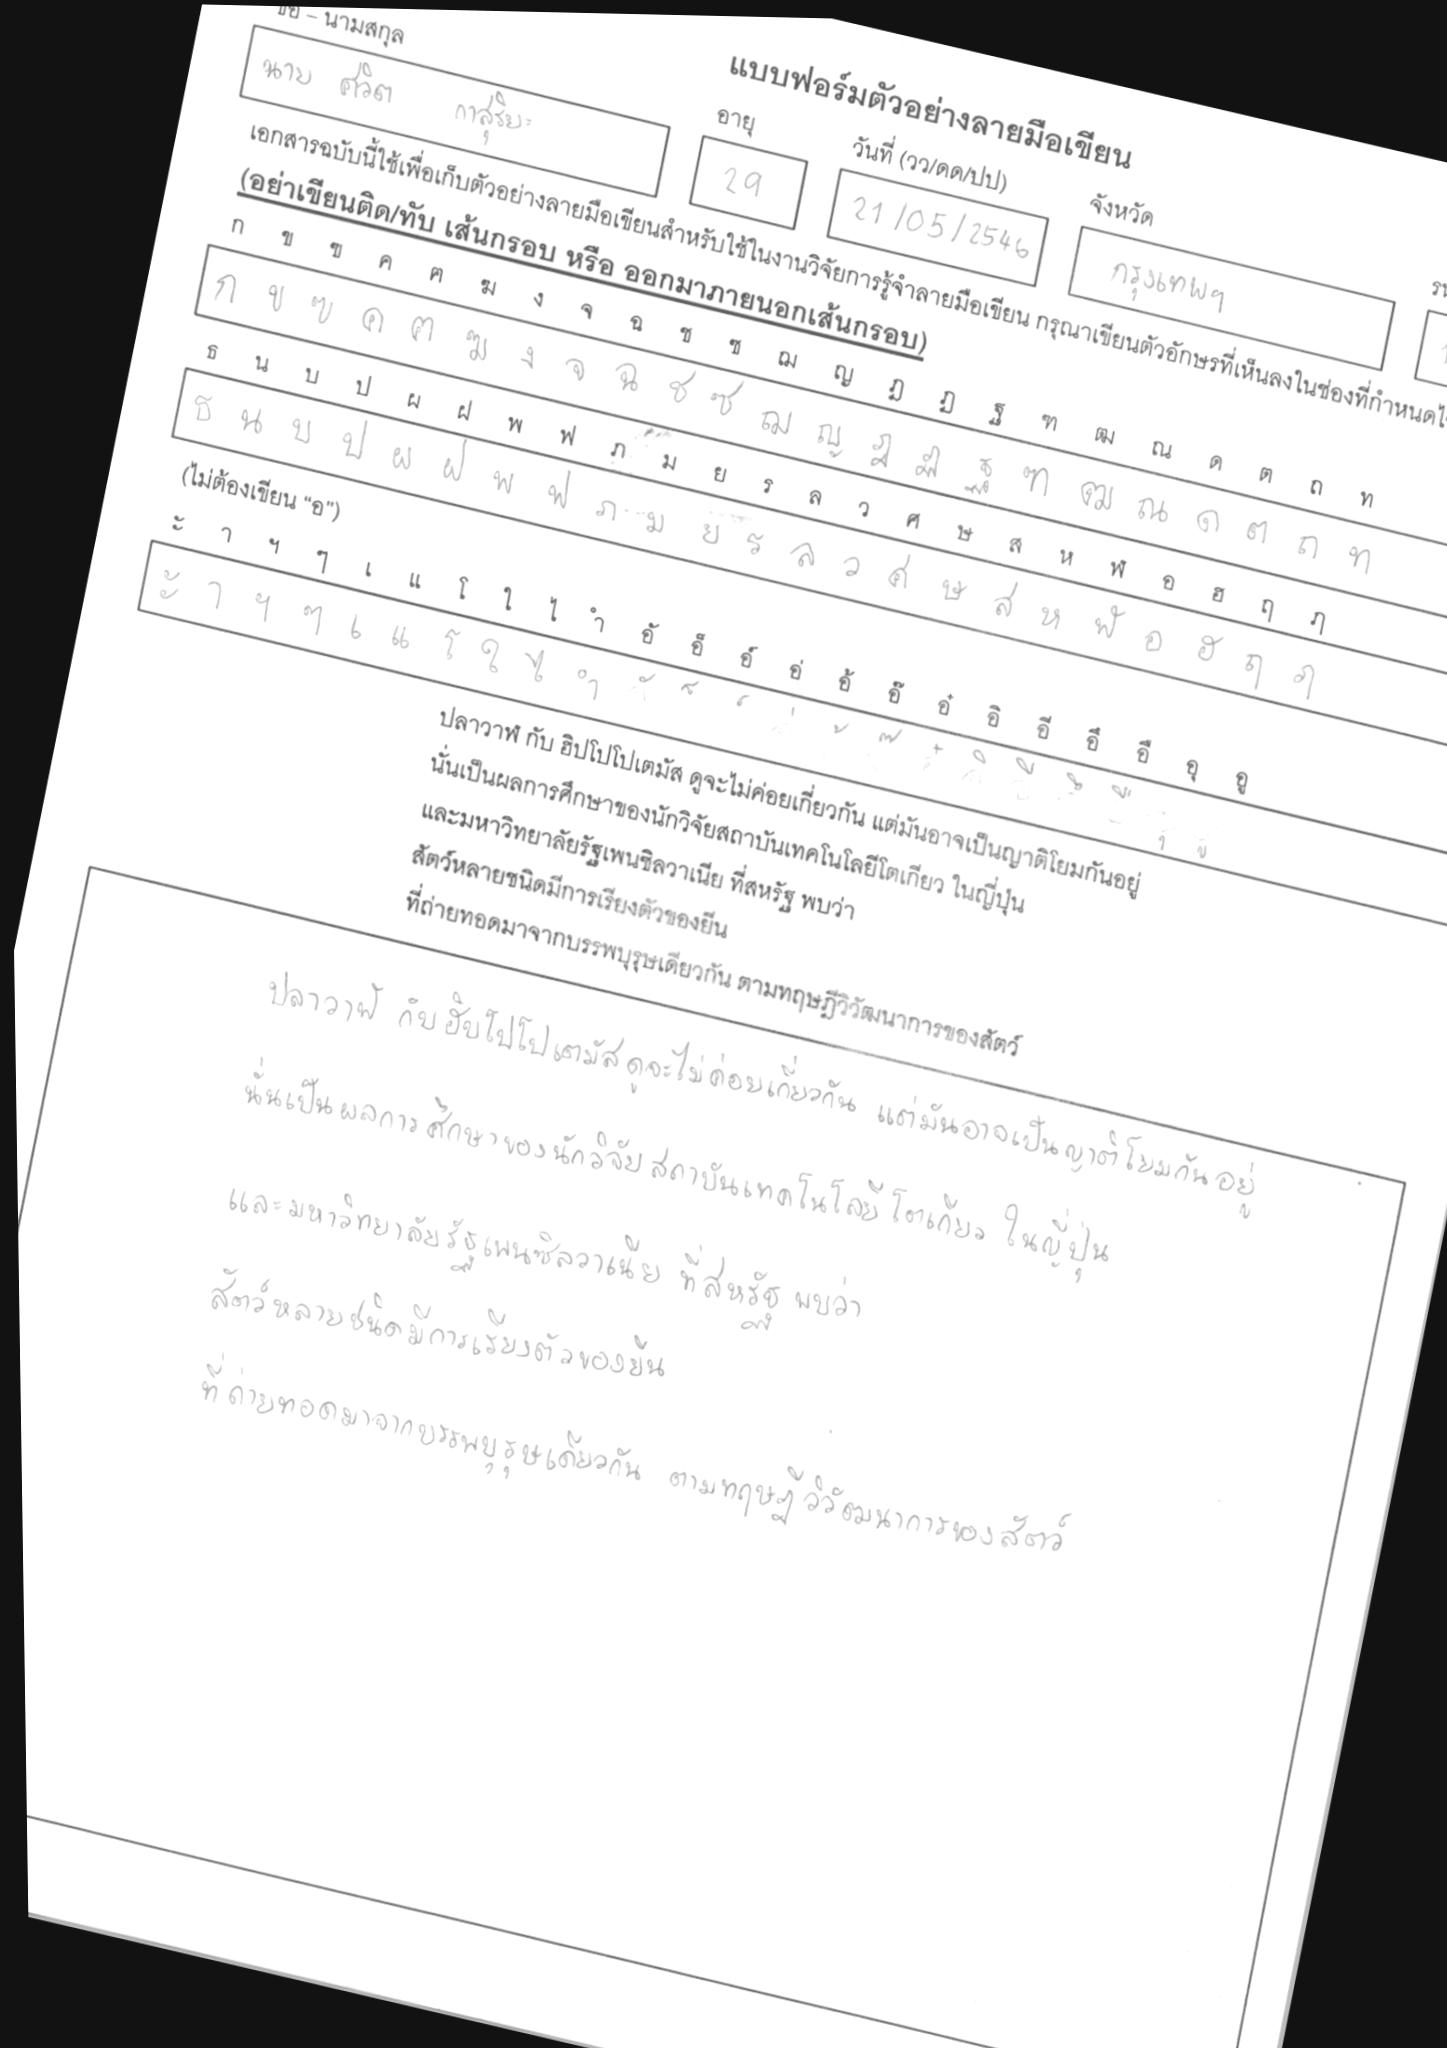 แบบฟอร์มตัวอย่างลายมือเขียน
ชื่อ – นามสกุล อายุ วันที่ (วว/ดด/ปป) จังหวัด
นาย ศวิต กาสุริยะ 29 21/05/2546 กรุงเทพฯ
เอกสารฉบับนี้ใช้เพื่อเก็บตัวอย่างลายมือเขียนสำหรับใช้ในงานวิจัยการรู้จำลายมือเขียน กรุณาเขียนตัวอักษรที่เห็นลงในช่องที่กำหนด
(อย่าเขียนติด/ทับ เส้นกรอบ หรือ ออกมาภายนอกเส้นกรอบ)
ก ข ฃ ค ฅ ฆ ง จ ฉ ช ซ ฌ ญ ฎ ฏ ฐ ฑ ฒ ณ ด ต ถ ท
ก ข ฃ ค ฅ ฆ ง จ ฉ ช ซ ฌ ญ ฎ ฏ ฐ ฑ ฒ ณ ด ต ถ ท
ธ น บ ป ผ ฝ พ ฟ ภ ม ย ร ล ว ศ ษ ส ห ฬ อ ฮ ฤ ฦ
ธ น บ ป ผ ฝ พ ฟ ภ ม ย ร ล ว ศ ษ ส ห ฬ อ ฮ ฤ ฦ
(ไม่ต้องเขียน “อ”)
ะ า ฯ ๆ เ แ โ ใ ไ ำ อั อ็ อ์ อ่ อ้ อ๊ อ๋ อิ อี อึ อื อุ อู
ะ า ฯ ๆ เ แ โ ใ ไ ำ ั ็ ์ ่ ้ ๊ ๋ ิ ี ึ ื ุ ู
ปลาวาฬ กับ ฮิปโปโปเตมัส ดูจะไม่ค่อยเกี่ยวกัน แต่มันอาจเป็นญาติโยมกันอยู่
นั่นเป็นผลการศึกษาของนักวิจัยสถาบันเทคโนโลยีโตเกียว ในญี่ปุ่น
และมหาวิทยาลัยรัฐเพนซิลวาเนีย ที่สหรัฐ พบว่า
สัตว์หลายชนิดมีการเรียงตัวของยีน
ที่ถ่ายทอดมาจากบรรพบุรุษเดียวกัน ตามทฤษฎีวิวัฒนาการของสัตว์
ปลาวาฬ กับฮิบโปโปเตมัสดูจะไม่ค่อยเกี่ยวกัน แต่มันอาจเป็นญาติโยมกันอยู่
นั่นเป็นผลการศึกษาของนักวิจัยสถาบันเทคโนโลยีโตเกียว ในญี่ปุ่น
และมหาวิทยาลัยรัฐเพนซิลวาเนีย ที่สหรัฐ พบว่า
สัตว์หลายชนิดมีการเรียงตัวของยีน
ที่ถ่ายทอดมาจากบรรพบุรุษเดียวกัน ตามทฤษฎีวิวัฒนาการของสัตว์